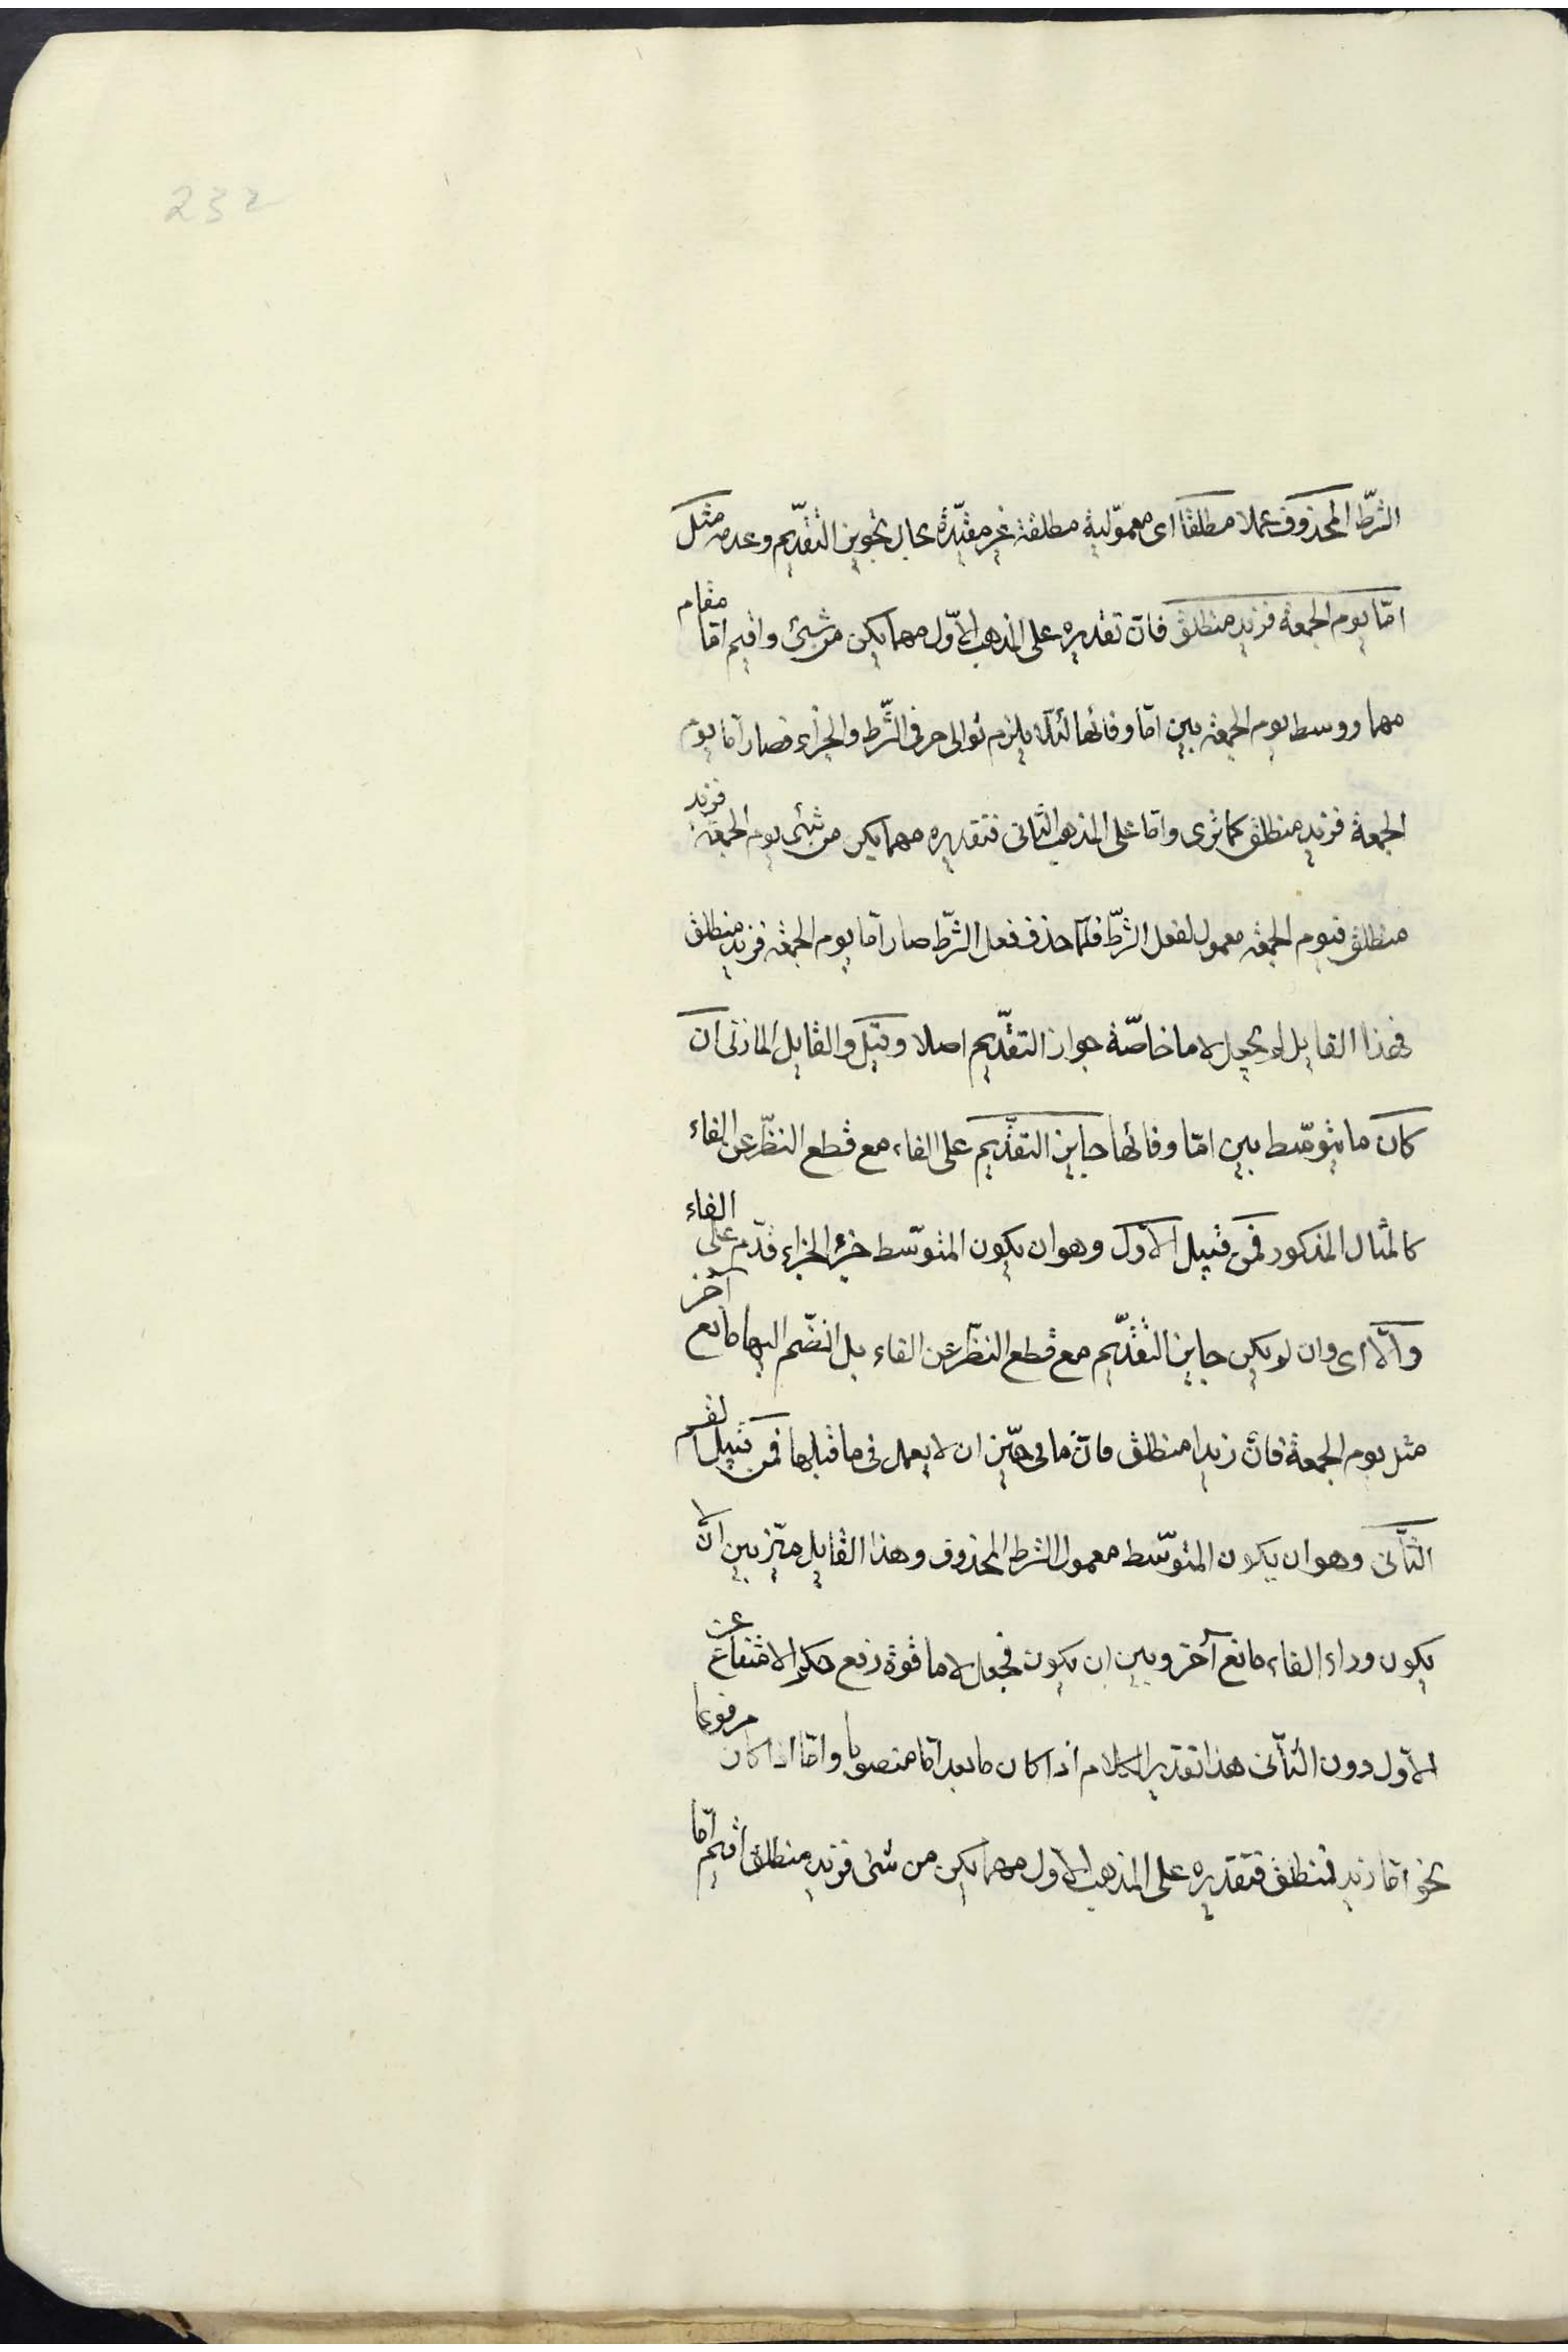 232
الشرط المحذوف عملا مطلقا اى معمولية مطلقة غير مقيدة بحال تجويز التقديم وعدمه مثل
امّا يوم الجمعة فزيد منطلق فان تقديره على المذهب الاوّل مهما يكن من شئ واقيم امّا مقام
مهما ووسط يوم الجمعة بين امّا وفائها لئلّا يلزم توالى حرفى الشّرط والجزاء فصار امّا يوم
الجمعة فزيد منطلق كما ترى وامّا على المذهب الثانى فتقديره مهما يكن من شئ يوم الجمعة فزيد
منطلق فيوم الجمعة معمول لفعل الشرط فلمّا حذف فعل الشرط صار امّا يوم الجمعة فزيد منطلق
فهذا القايل لم يجعل لاما خاصّة جواز التقديم اصلا وقيل والقايل المازنى ان
كان ما يتوسّط بين امّا وفائها جايز التقديم على الفاء مع قطع النظر عن الفاء
كالمثال المذكور فمن قبيل الاوّل وهو ان يكون المتوسّط جزء الجزاء قدّم على الفاء
والّا اى وان لم يكن جايز التقديم مع قطع النظر عن الفاء بل انضّم اليها مانع آخر
مثل يوم الجمعة فانّ زيدا منطلق فانّ ما فى حيّز ان لا يعمل فى ما قبلها فمن قبيل القسم
الثّانى وهو ان يكون المتوسّط معمول الشرط المحذوف وهذا القايل ميّز بين ان لا
يكون وراء الفاء مانع آخر وبين ان يكون فجعل لاما قوة رفع حكم الامتناع عن
الاوّل دون الثّانى هذا تقدير الكلام اذا كان ما بعد امّا منصوبا وامّا اذا كان مرفوعا
نحو امّا زيد فمنطلق فتقديره على المذهب الاول مهما يكن من شئ فزيد منطلق اقيم امّا